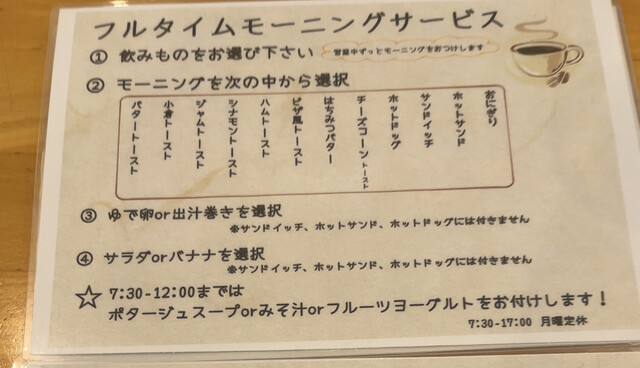 フルタイムモーニングサービス
① 飲みものをお選び下さい 営業中ずっとモーニングをおつけします
② モーニングを次の中から選択
おにぎり
ホットサンド
サンドイッチ
ホットドッグ
チーズコーントースト
はちみつバター
ピザ風トースト
ハムトースト
シナモントースト
ジャムトースト
小倉トースト
バタートースト
③ ゆで卵or出汁巻きを選択
※サンドイッチ、ホットサンド、ホットドッグには付きません
④ サラダorバナナを選択
※サンドイッチ、ホットサンド、ホットドッグには付きません
☆ 7:30-12:00までは
ポタージュスープorみそ汁orフルーツヨーグルトをお付けします！
7:30-17:00 月曜定休